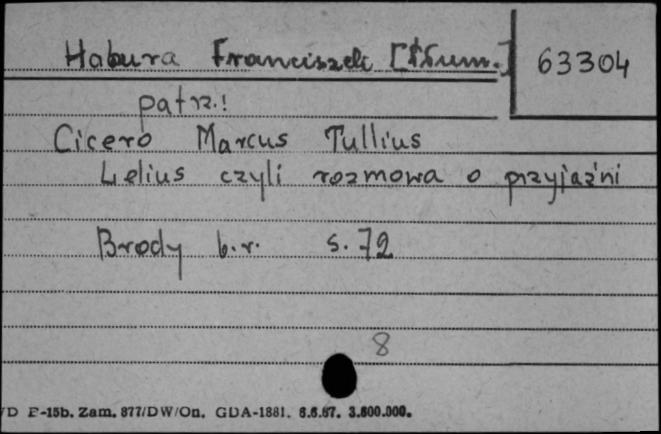 Habura Franciszek [tłum.] 63304
patrz!
Cicero Marcus Tullius
Lelius czyli rozmowa o przyjaźni
Brody b.r. s. 72
8
/D P-15b. Zam. 877/DW/On. GDA-1881. 8.6.67. 3.600.000.